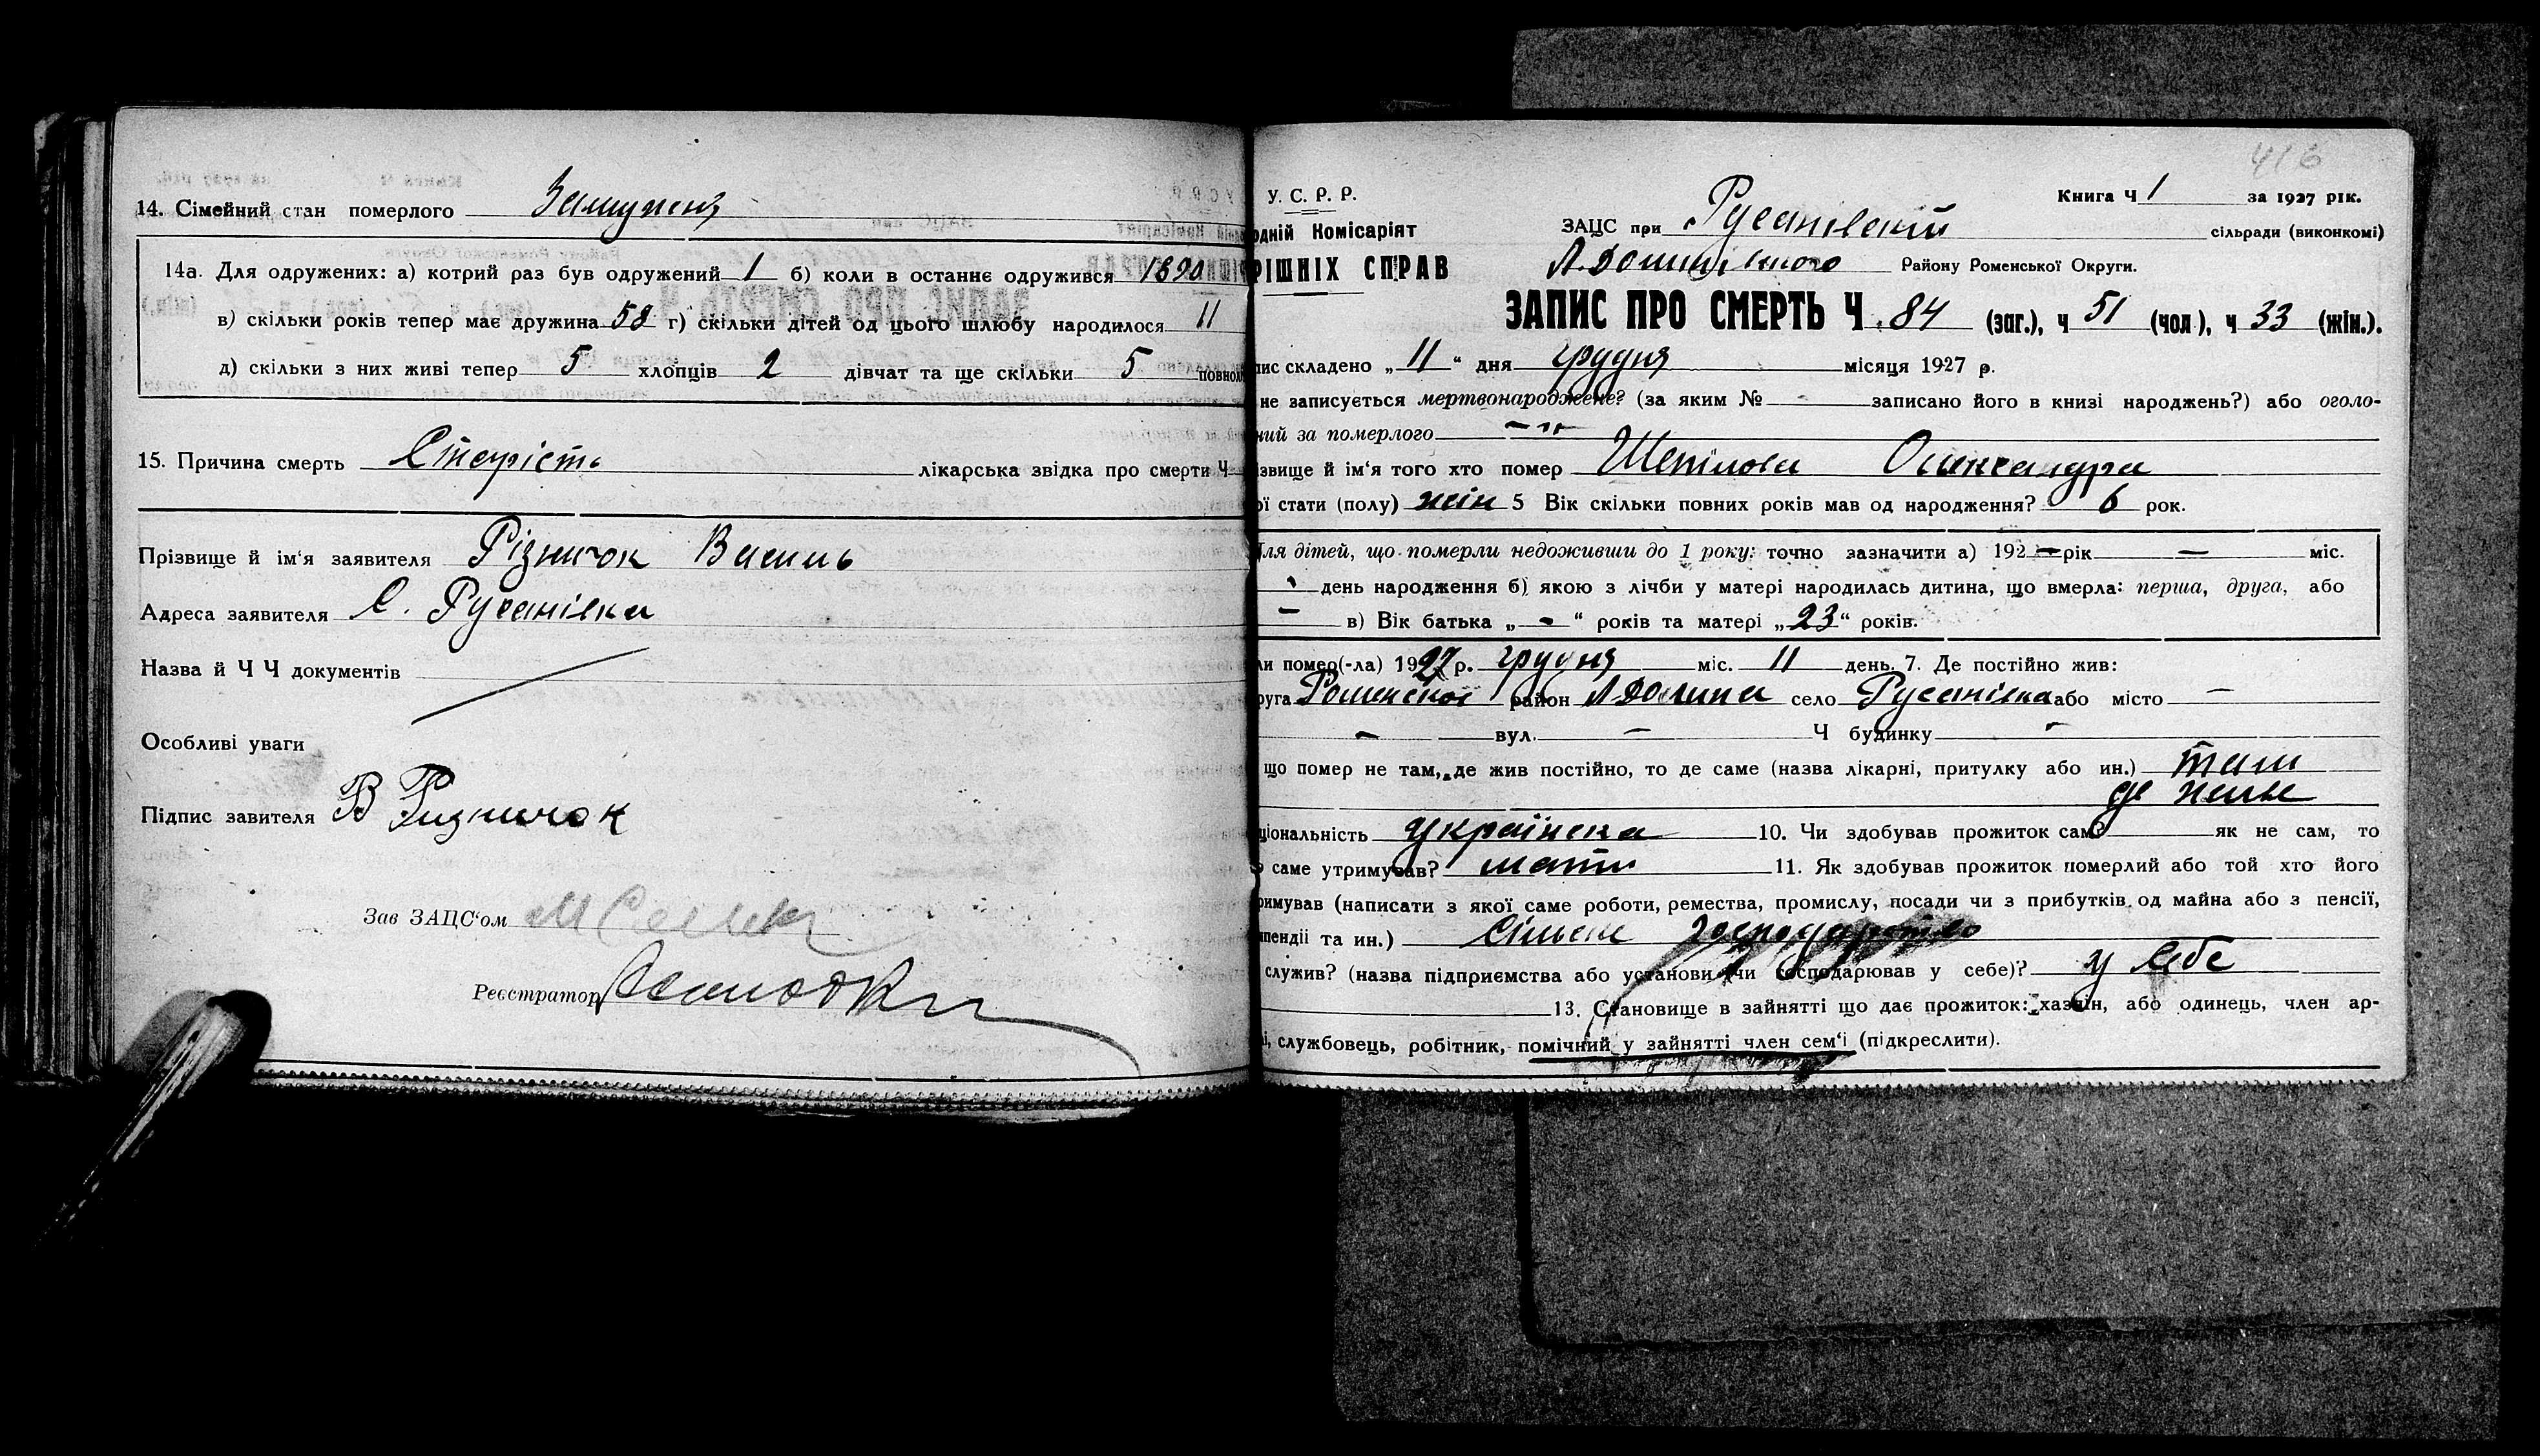 14. Сімейний стан померлого Замужня
14а. Для одружених: а) котрий раз був одружений 1 б) коли в останнє одружився 1890
в) скільки років тепер має дружина 58 г) скільки дітей од цього шлюбу народилося 11
д) скільки з них живі тепер 5 хлопців 2 дівчат та ще скільки 5 повнол
15. Причина смерть Старість лікарська звідка про смерти Ч
Прізвище й ім'я заявителя Різничок Василь
Адреса заявителя С. Русанівка
Назва й Ч Ч документів
Особливі уваги
Підпис завителя В Ризничок
Зав ЗАЦС'ом
Реєстратор
416
У. С. Р. Р.
Книга Ч 1 за 1927 рік.
одній Комісаріят
ЗАЦС при Русанівській сільради (виконкомі)
РІШНІХ СПРАВ
Л. Долинського Району Роменської Округи.
ЗАПИС ПРО СМЕРТЬ Ч. 84 (заг.), ч 51 (чол), ч 33 (жін.).
пис складено „ 11 “ дня грудня місяця 1927 р.
не записується мертвонароджене? (за яким № - записано його в книзі народжень?) або оголо-
ний за померлого - „ -
ізвище й ім'я того хто помер Шепілова Олександра
ої стати (полу) жін 5 Вік скільки повних років мав од народження? 6 рок.
Для дітей, що померли недоживши до 1 року: точно зазначити а) 192 — рік — міс.
- день народження б) якою з лічби у матері народилась дитина, що вмерла: перша, друга, або
— в) Вік батька „ - “ років та матері „ 23 “ років.
ли помер(-ла) 1927 р. грудня міс. 11 день. 7. Де постійно жив:
руга Роменської район Л Долина село Русанівка або місто —
— вул. — Ч будинку -
що помер не там, де жив постійно, то де саме (назва лікарні, притулку або ин.) там
де живе
ціональність українка 10. Чи здобував прожиток сам? як не сам, то
о саме утримував? мати 11. Як здобував прожиток померлий або той хто його
римував (написати з якої саме роботи, ремества, промислу, посади чи з прибутків од майна або з пенсії,
пендії та ин.) Сільске господарство
служив? (назва підприємства або установи чи господарював у себе)? у себе
13. Становище в зайнятті що дає прожиток: хазяін, або одинець, член ар-
і, службовець, робітник, помічний у зайнятті член сем'ї (підкреслити).